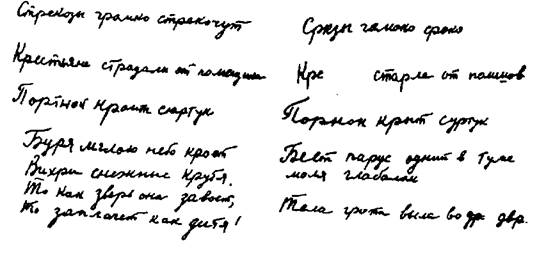 Стрекозы громко стрекочут
Крестьяне страдали от помещика
Портной кроит сюртук
Буря мглою небо кроет
Вихри снежные крутя.
То как зверь она завоет,
То заплачет как дитя!
Сркзы гамоко сроко
Кре старле от помшов
Порнок крыт суртук
Беет парус однит в туме
моля глабалои
Тала грота выла во др двр.